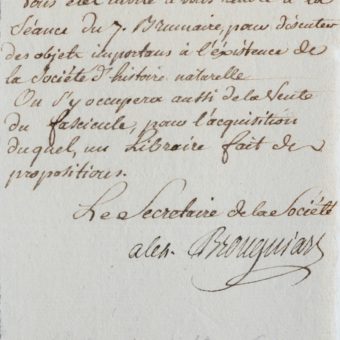 Vous êtes invité à vous rendre à la
Séance du 7. Brumaire, pour discuter
des objets importans à l'éxistence de
la Société d'histoire naturelle
On s'y occupera aussi de la Vente
du fascicule, pour l'acquisition
duquel, un Libraire fait de
propositions.
Le Secretaire de la Société
alex. Brongniart